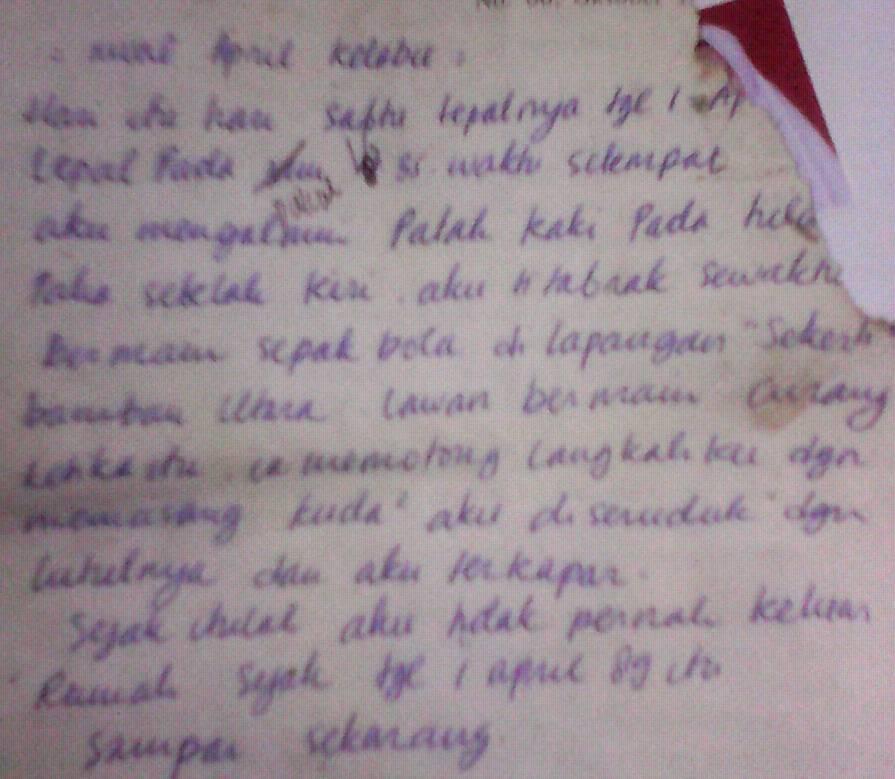 awal April kelabu
Hari itu hari sabtu tepatnya tgl 1 Ap
tepat Pada waktu setempat
aku mengalami Patah kaki Pada
Paha sebelah kiri aku ditabrak sewaktu
Bermain sepak bola di lapangan "
Utara lawan bermain curang
ketika itu ia memotong langkahku dgn
memasang kuda² aku diseruduk dgn
lututnya dan aku terkapar.
Sejak itulah aku tidak pernah keluar
Rumah sejak tgl 1 april 89 itu
Sampai sekarang